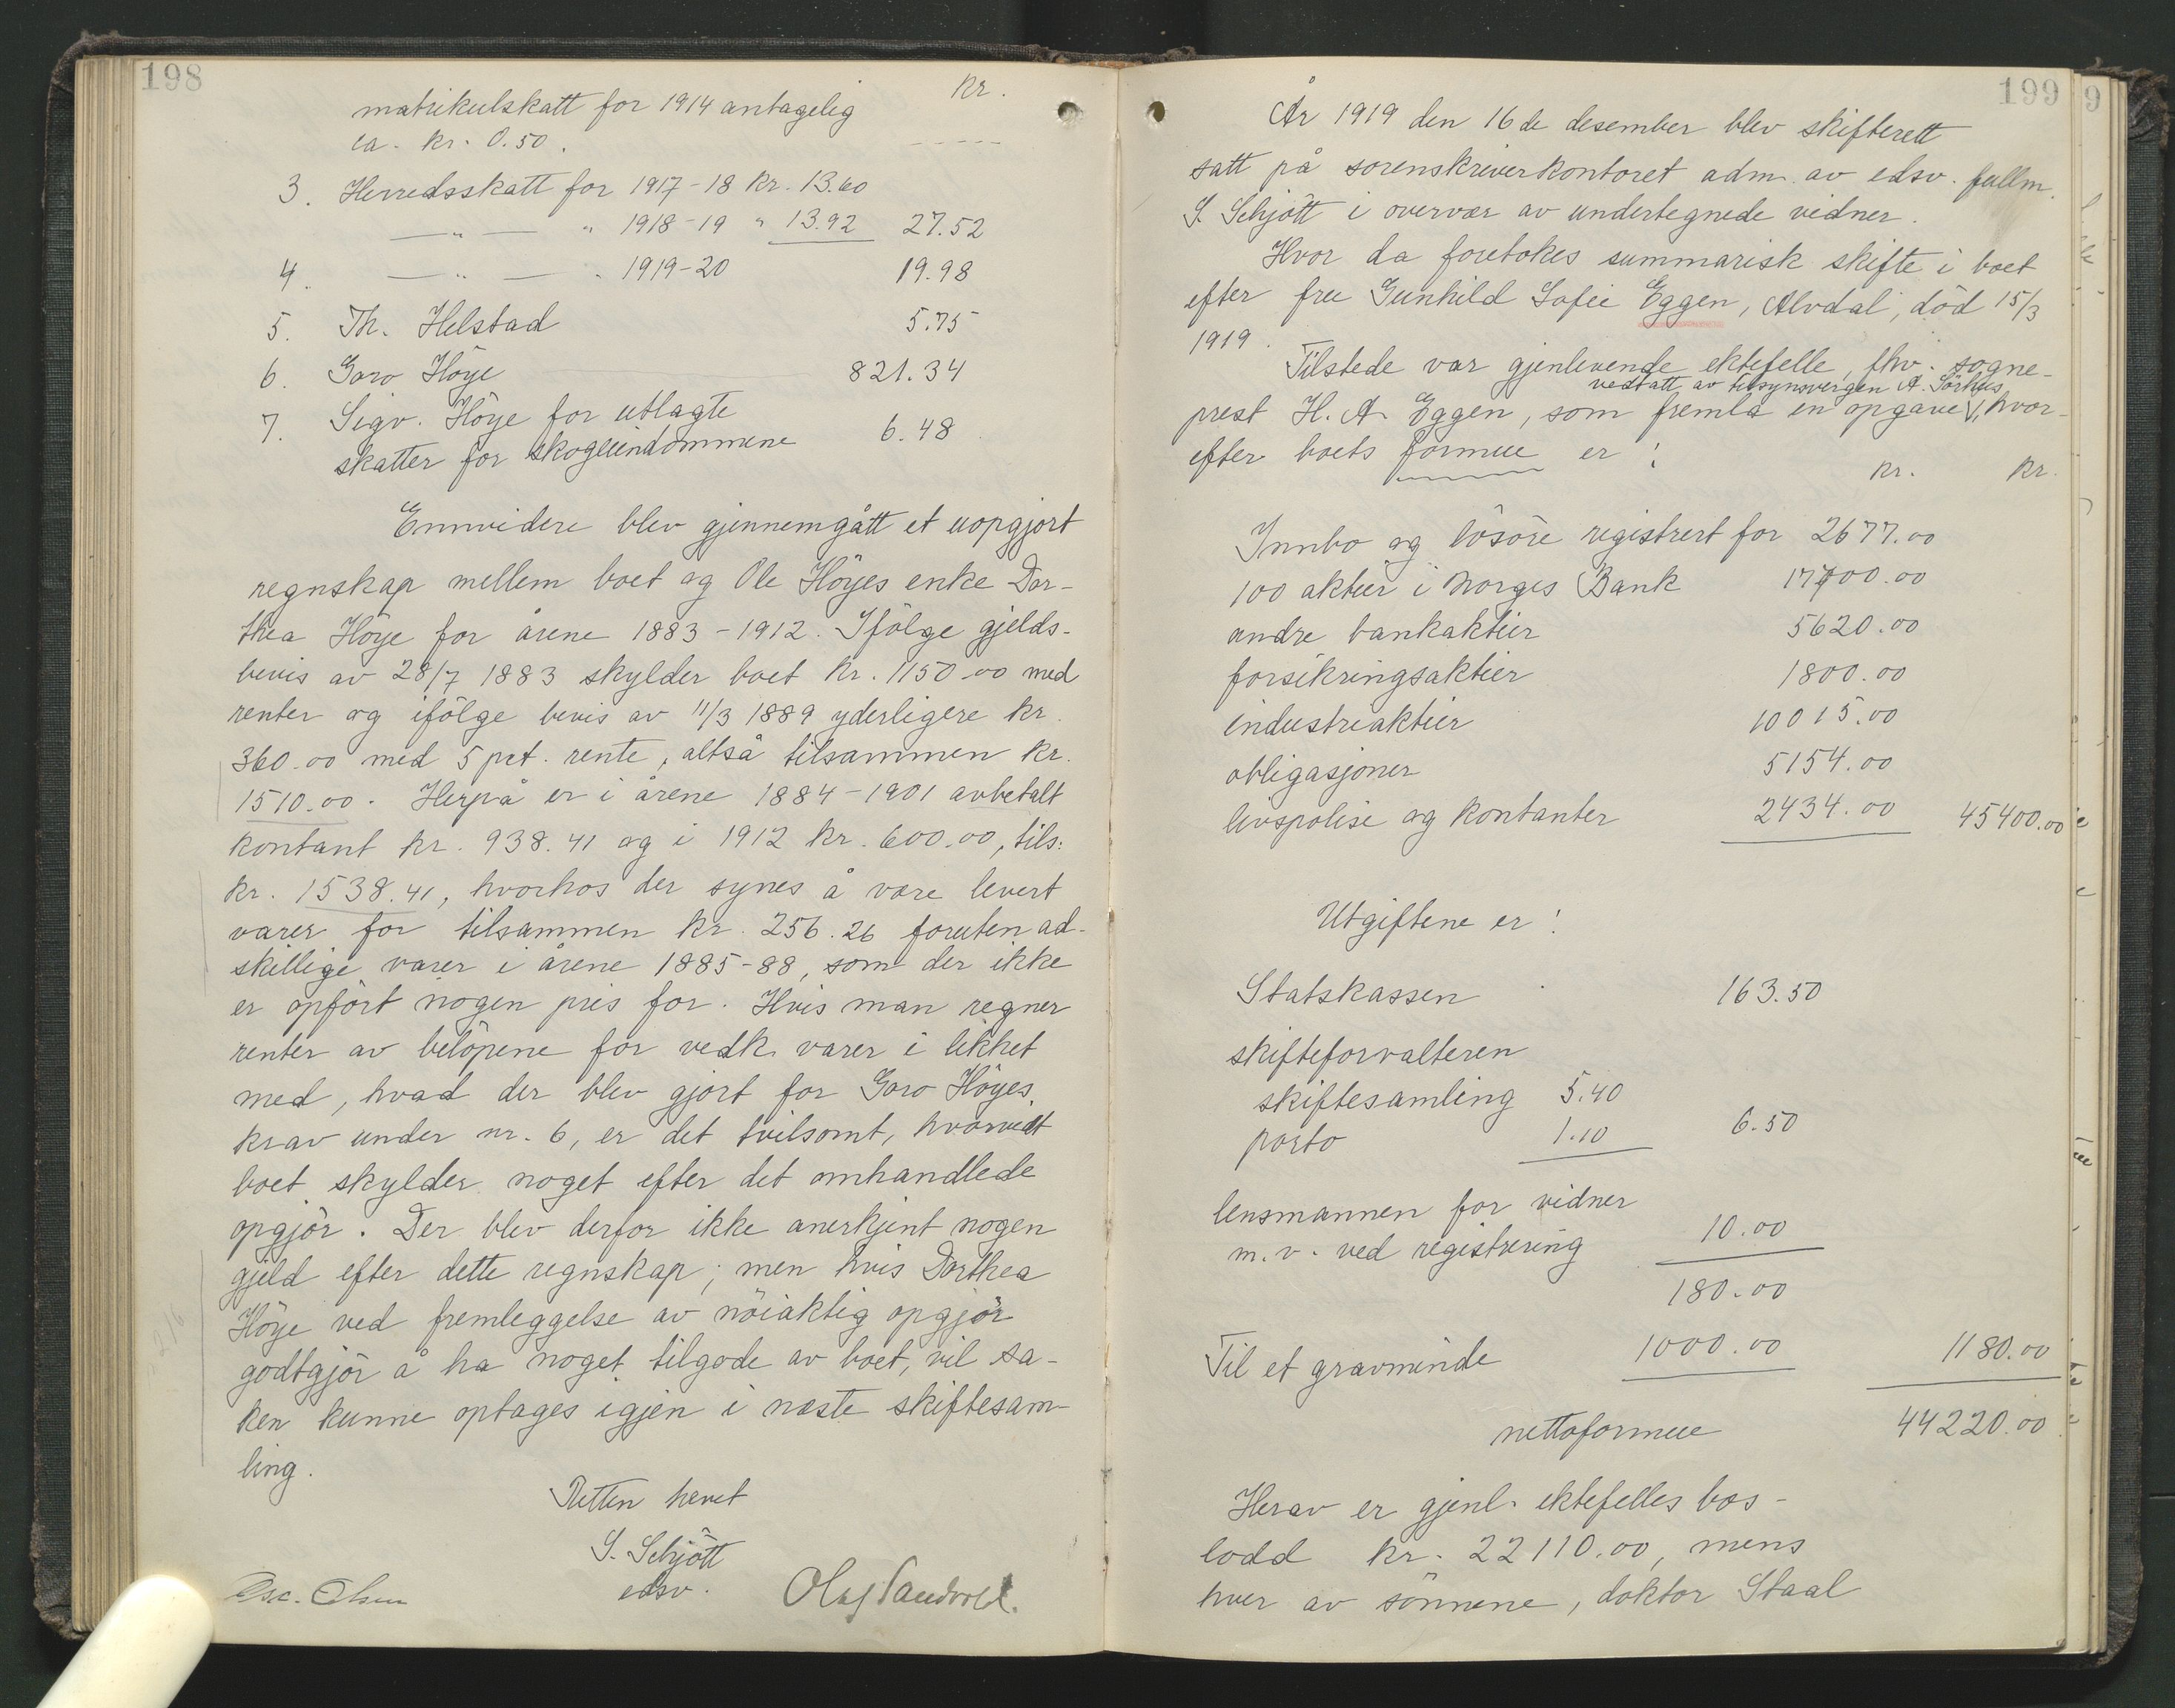 198
kr.
matrikulskatt for 1914 antagelig
ca. kr. 0.50. -----
3. Herredsskatt for 1917-18 kr. 13.60
—"— " 1918-19 " 13.92 27.52
4. —"— " 1919-20 19.98
5. Th. Helstad 5.75
6. Goro Höye 821.34
7. Sigv. Höye for utlagte
skatter for skogeiendommene 6.48
Ennvidere blev gjennemgått et uopgjort
regnskap mellem boet og Ole Höyes enke Dor-
thea Höye for årene 1883-1912. Ifölge gjelds-
bevis av 28/7 1883 skylder boet kr. 1150.00 med
renter og ifölge bevis av 11/3 1889 yderligere kr.
360.00 med 5 pct. rente, altså tilsammen kr.
1510.00. Herpå er i årene 1884-1901 avbetalt
kontant kr. 938.41 og i 1912 kr. 600.00, tils:
kr. 1538.41, hvorhos der synes å være levert
varer for tilsammen kr. 256.26 foruten ad-
skillige varer i årene 1885-88, som der ikke
er opfört nogen pris for. Hvis man regner
renter av belöpene for vedk. varer i likhet
med, hvad der blev gjort for Goro Höyes
krav under nr. 6, er det tvilsomt, hvorvidt
boet skylder noget efter det omhandlede
opgjör. Der blev derfor ikke anerkjent nogen
gjeld efter dette regnskap; men hvis Dorthea
Höye ved fremleggelse av nöiaktig opgjör
godtgjör å ha noget tilgode av boet, vil sa-
ken kunne optages igjen i næste skiftesam-
ling.
Retten hævet
S. Schjött
edsv.
Osc. Olsen Olaf Sandvold.
199
År 1919 den 16de desember blev skifterett
satt på sorenskriverkontoret adm. av edsv. fullm.
S. Schjött i overvær av undertegnede vidner.
Hvor da foretokes summarisk skifte i boet
efter fru Gunhild Sofie Eggen, Alvdal, död 15/3
1919.
Tilstede var gjenlevende ektefelle, fhv. sogne-
vedtatt av tilsynsvergen A. Sörhus
prest H. A. Eggen, som fremla en opgave √, hvor-
efter boets formue er:
kr. kr.
Innbo og lösöre registrert for 2677.00
100 aktier i Norges Bank 17700.00
andre bankaktier 5620.00
forsikringsaktier 1800.00
industriaktier 10015.00
obligasjoner 5154.00
livspolise og kontanter 2434.00 45400.00
Utgiftene er:
Statskassen 163.50
skifteforvalteren
skiftesamling 5.40
porto 1.10 6.50
lensmannen for vidner
m.v. ved registrering 10.00
180.00
Til et gravminde 1000.00 1180.00
nettoformue 44220.00
Herav er gjenl. ektefelles bos-
lodd kr. 22110.00, mens
hver av sönnene, doktor Staal
9